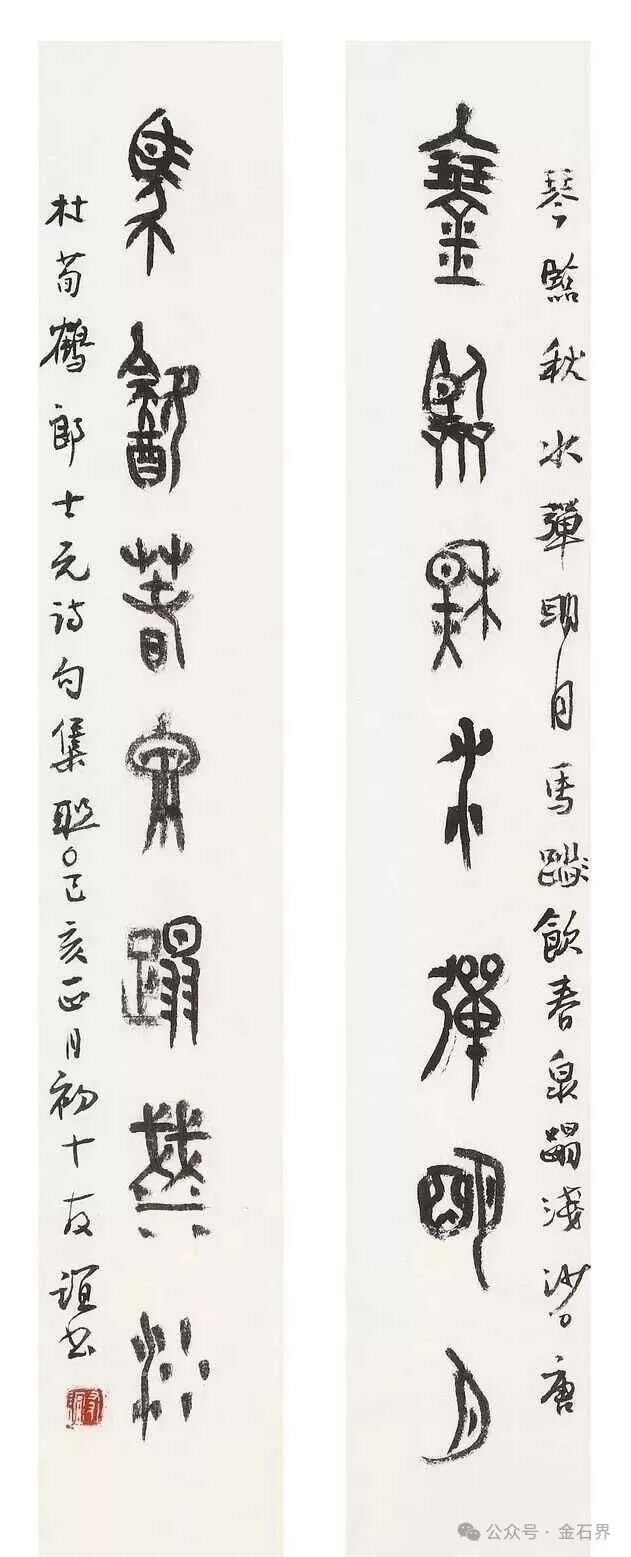 琴臨秋水彈明月
馬飲春泉蹋淺沙
琴臨秋水彈明月馬蹴飲春泉蹋淺沙唐
杜荀鶴郎士元诗句集聯○己亥正月初十友誼书
公众号·金石界